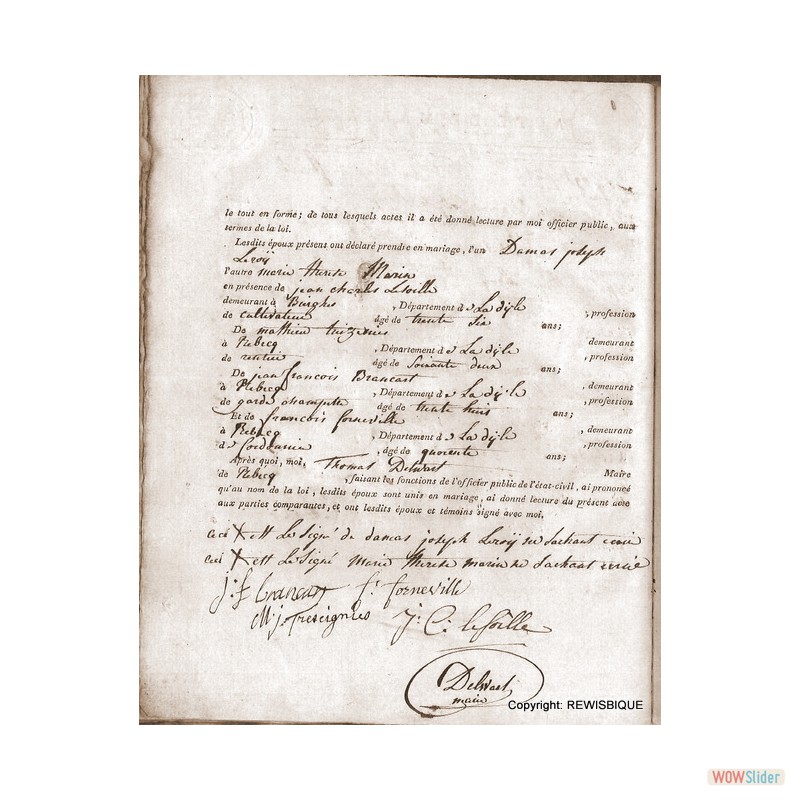 le tout en forme; de tous lesquels actes il a été donné lecture par moi officier public, aux
termes de la loi.
Lesdits époux présens ont déclaré prendre en mariage, l'un Damas joseph
Leroÿ
l'autre marie therese Marin
en présence de jean charles
demeurant à , Département de La dÿle , profession
de cultivateur âgé de trente Six ans;
De mathieu
à Rebecq , Département de La dÿle demeurant
de rentier âgé de Soixante deux , profession
De jean françois Brancart ans;
à Rebecq , Département de La dÿle , demeurant
de garde champette âgé de trente huit , profession
Et de françois forneville ans;
à Rebecq , Département de La dÿle , demeurant
de Cordonnier , âgé de quarente , profession
Après quoi, moi, Thomas Delwart ans;
de Rebecq , faisant les fonctions de l'officier public de l'état-civil, ai prononcé Maire
qu'au nom de la loi, lesdits époux sont unis en mariage, ai donné lecture du présent acte
aux parties comparantes, et ont lesdits époux et témoins signé avec moi.
Ceci X est Le Signé de damas joseph Leroÿ ne Sachant
Ceci X est Le Signé marie therese marin ne Sachant
j: f Brancart f: forneville
M: j: J: C:
Delwart
maire
Copyright: REWISBIQUE
WOWSlider